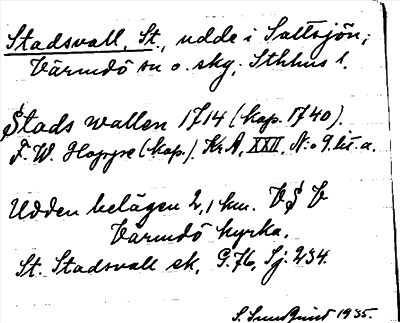 Stadsvall, St., udde i Saltsjön;
Värmdö sn o. skg, Sthlms l.
Stads wallen 1714 (kop. 1740).
F. W. Hoppe (kop.). Kr.A, XXII, N:o 9. lit. a.
Udden belägen 2,1 km. V S V
Värmdö kyrka.
St. Stadsvall ek, G.76, Sj. 234.
S. Sundquist 1935.